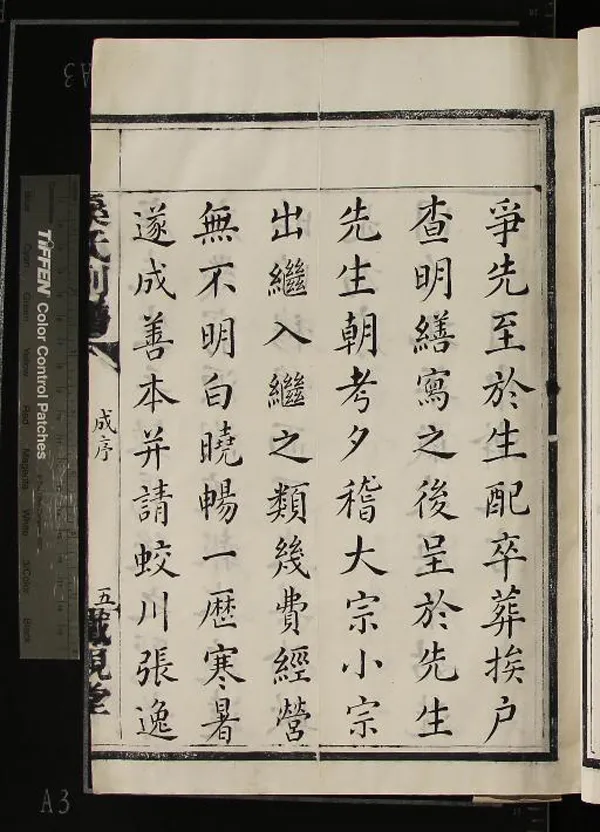 爭先至於生配卒葬挨户
查明繕寫之後呈於先生
先生朝考夕稽大宗小宗
出繼入繼之類幾費經營
無不明白曉暢一厯寒暑
遂成善本并請蛟川張逸
成序
五
TIFFEN Color Control Patches
A3
A3